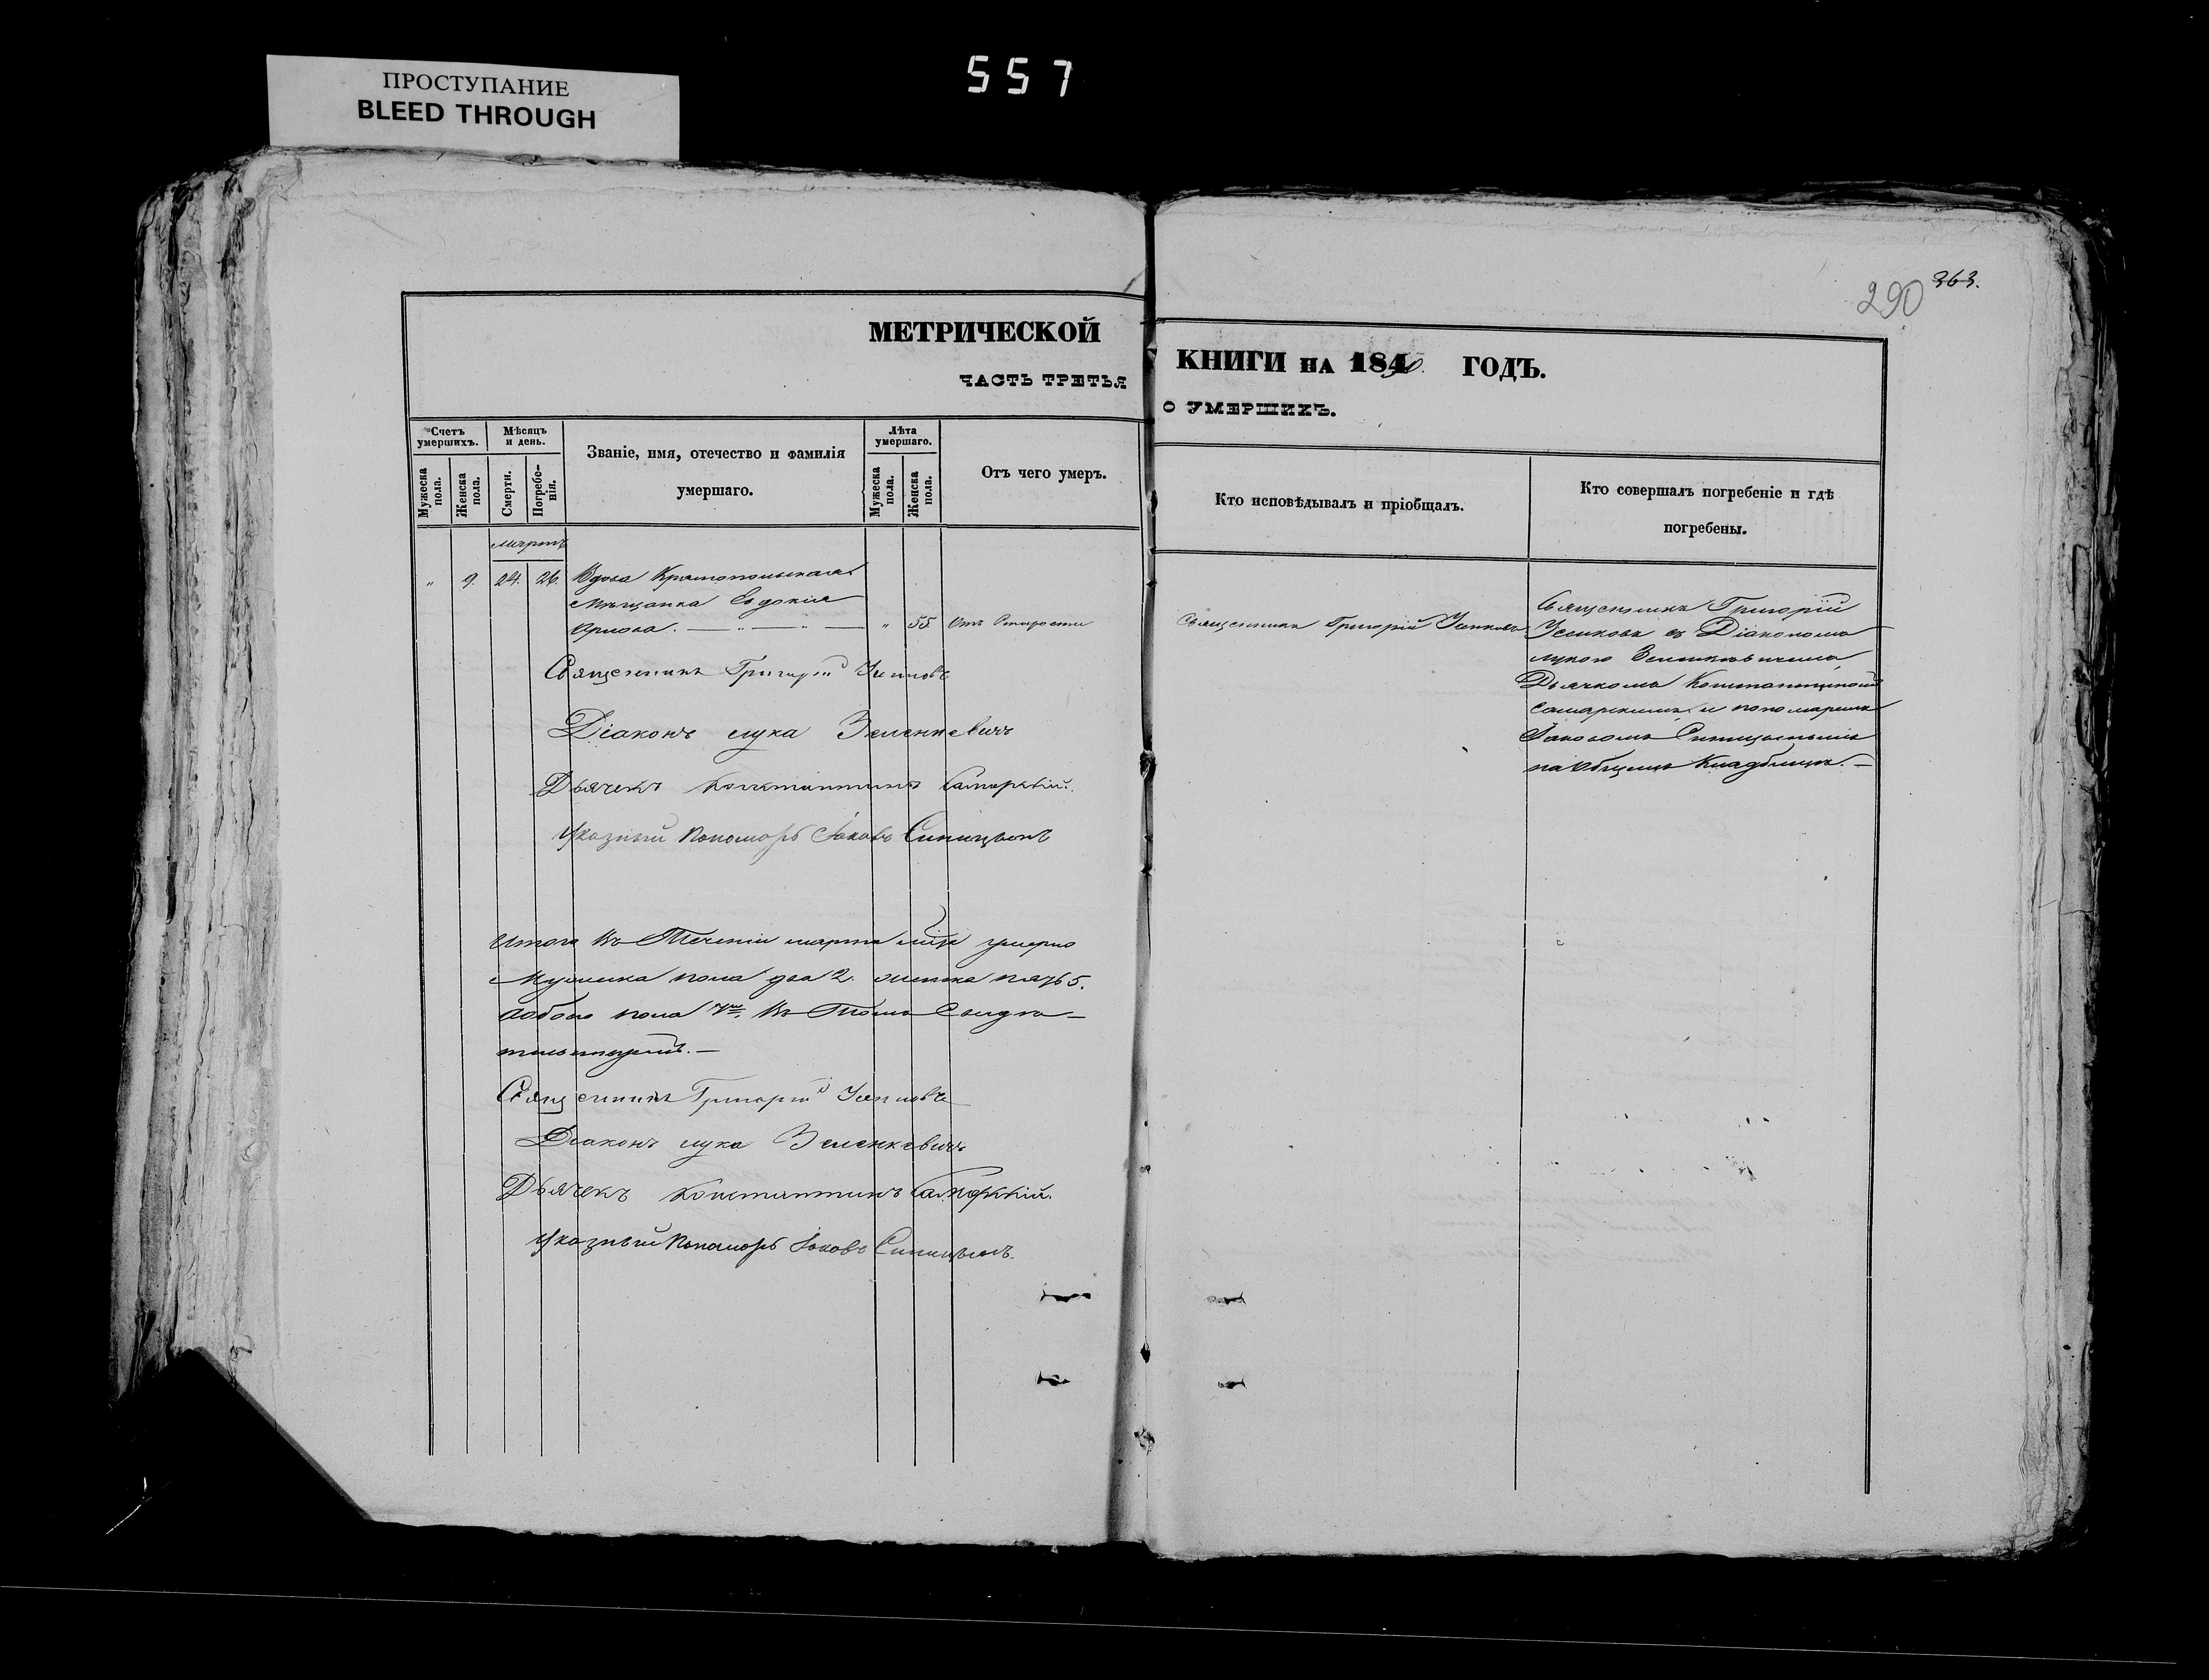 ПРОСТУПАНИЕ
BLEED THROUGH
557
290 363.
МЕТРИЧЕСКОЙ
ЧАСТЬ ТРЕТЬЯ
КНИГИ НА 1850. ГОДЪ.
О УМЕРШИХЪ.
Счетъ умершихъ.
Мѣсяцъ и день.
Званіе, имя, отечество и фамилія
умершаго.
Лѣта умершаго.
Отъ чего умеръ.
Мужеска пола.
Женска пола.
Смерти.
Погребе-
нія.
Мужеска пола.
Женска пола.
Кто исповѣдывалъ и пріобщалъ.
Кто совершалъ погребеніе и гдѣ
погребены.
Мартъ
„ 9. 24. 26. Вдова
Мѣщанка Евдокія
„ 55 Отъ Старости
Священникъ Григорій
Священникъ Григорій
съ Діакономъ
Лукою Зеленкевичемъ
Дьячкомъ Константиномъ
Самарскимъ и пономаремъ
Іаковомъ Синицынымъ
на Общемъ Кладбищѣ. —
Священникъ Григорій
Діаконъ Лука Зеленкевичъ
Дьячекъ Константинъ Самарскій.
Указный Пономарь Іаковъ Синицынъ
Итого въ Теченіи марта умерло
Мужеска пола два 2. женска пять 5.
обоего пола 7. Въ Томъ Свидѣ-
тельствуемъ. —
Священникъ Григорій
Діаконъ Лука Зеленкевичъ
Дьячекъ Константинъ Самарскій.
Указный Пономарь Іаковъ Синицынъ